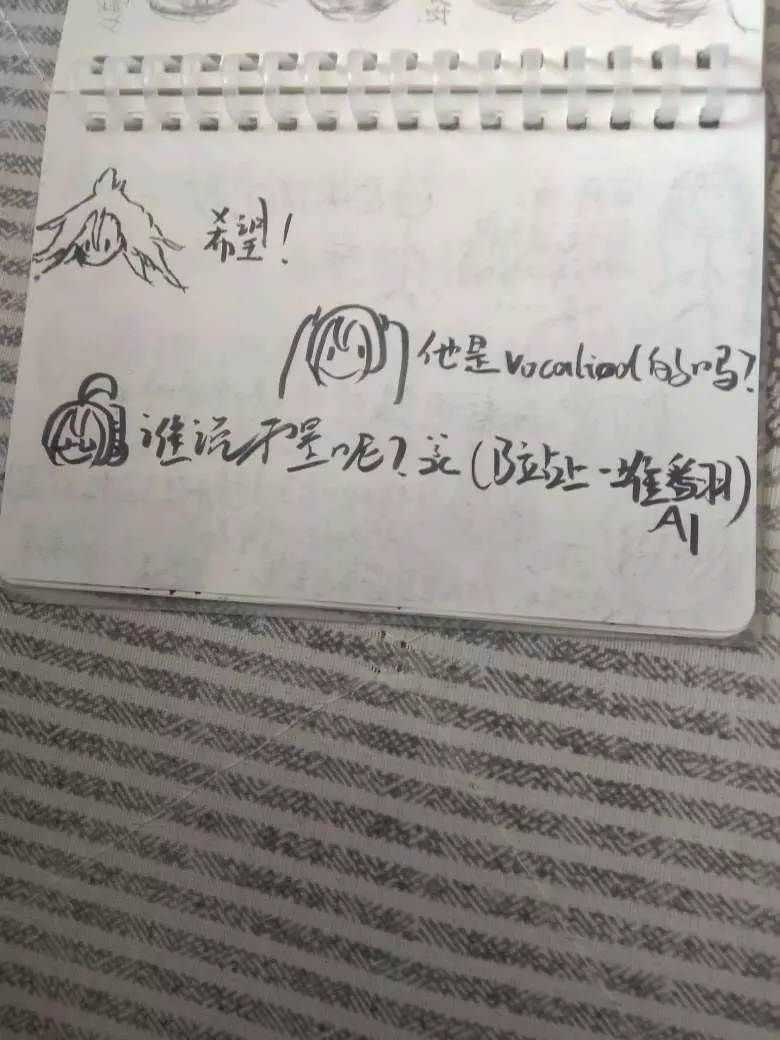 希望!
他是vocaliod的吗?
谁说不是呢?(B站上一堆番羽
AI)